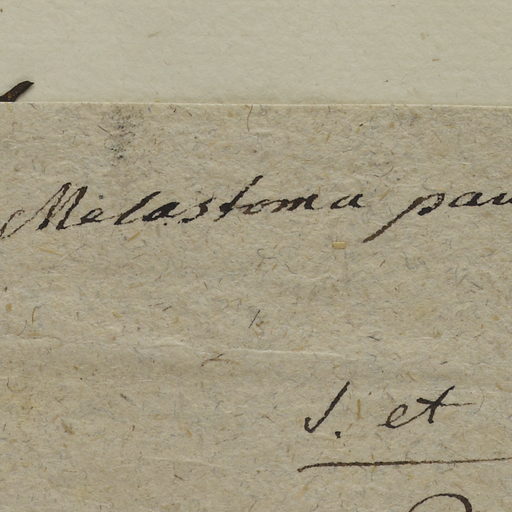 Melastoma pau
S. et